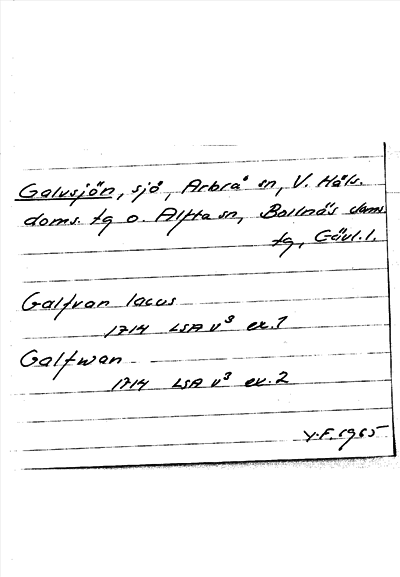 Galvsjön, sjö, Arbrå sn, V. Häls.
doms. tg o. Alfta sn, Bollnäs doms.
tg, Gävl. l.
Galfvan lacus
1714 LSA V³ ex. 1
Galfwan
1714 LSA V³ ex. 2
Y.F. 1965